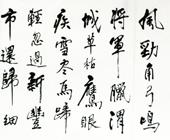 風勁角弓鳴
將軍獵渭
城草枯鷹眼
疾雪尽馬蹄
輕忽過新豐
市還歸細